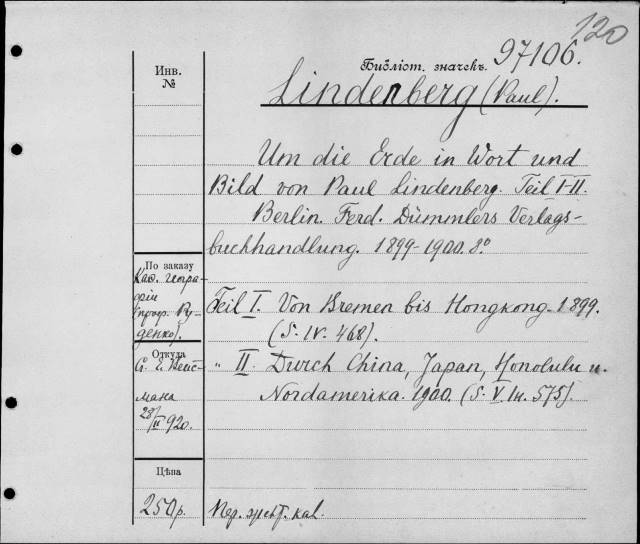 120
Библіот. значекъ. 97106.
Инв.
№
Lindenberg (Paul).
Um die Erde in Wort und
Bild von Paul Lindenberg. Teil I-II.
Berlin. Ferd. Dümmlers Verlags-
buchhandlung. 1899-1900. 8°
По заказу
Каѳ. геогра-
фіи
(проф. Ру-
денко).
Teil I. Von Bremen bis Hongkong. 1899.
(S. IV. 468).
Откуда
С. Е. Вейс-
мана
28/II 920.
" II. Durch China, Japan, Honolulu u.
Nordamerika. 1900. (S. V. 575).
Цѣна
250 р.
Пер. kal.